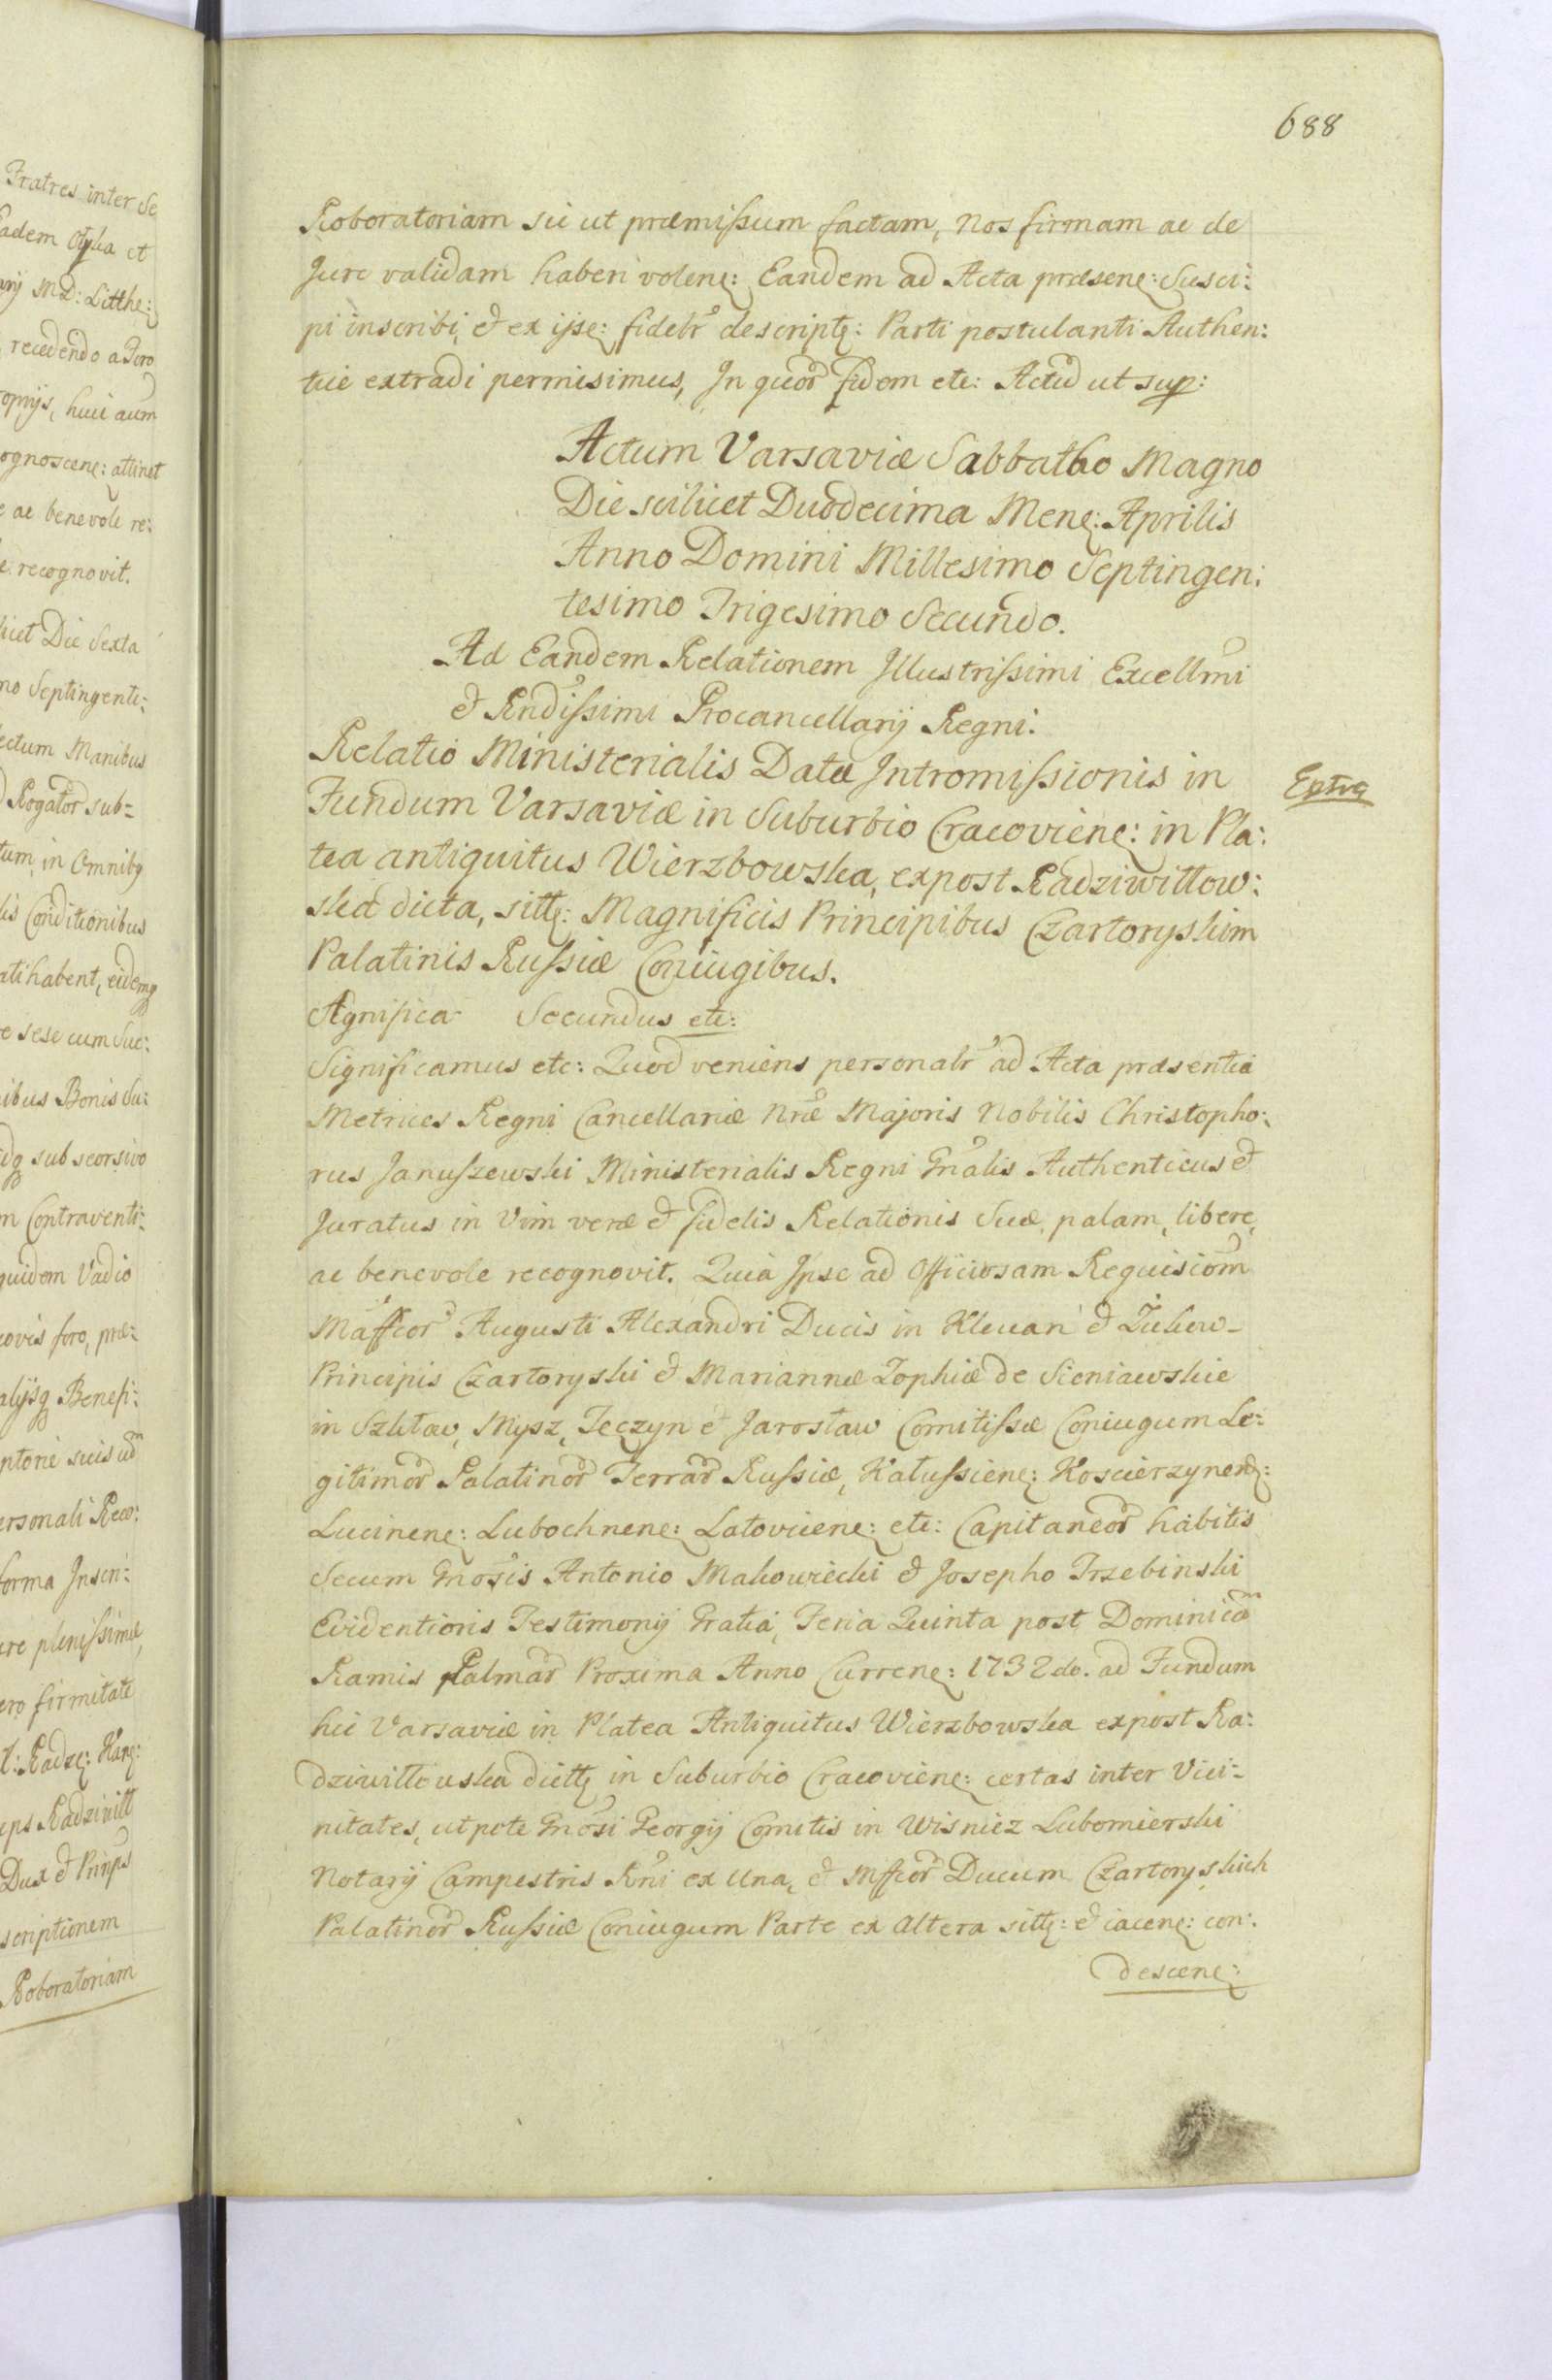 688
Fratres inter Se
eadem Ottha et
MD: Litthe:
recedendo a Foro
huic aum
ognoscene: attinet
ac benevole re:
recognovit.
licet Die Sexta
no Septingente:
ectum Manibus
Rogator sub=
tum, in Omnibq
lis Conditionibus
atihabent, eidemq
e sese cum Suc:
ibus Bonis Su:
sub seorsivo
m Contraventi:
quidem Vadio
covis foro, præ:
alijsq Benefi:
ptorie suis
ersonali Reco:
forma Inscri:
ure plenissimæ,
ero firmitate
Radzivill
Dux & Prinps
scriptionem
Roboratoriam
Roboratoriam sic ut præmissum factam, Nos firmam ac de
Jure validam haberi volene: Eandem ad Acta præsene: Susci:
pi inscribi, & ex ijse: fidelr descripte: Parti postulanti Authen:
tice extradi permisimus, In quor fidem etc: Actũ ut sup:
Actum Varsaviæ Sabbatho Magno
Die scilicet Duodecima Mene: Aprilis
Anno Domini Millesimo Septingen:
tesimo Trigesimo Secundo.
Ad Eandem Relationem Illustrissimi Excellmi
& Rndissimi Procancellarij Regni.
Relatio Ministerialis Datæ Intromissionis in
Extra
Fundum Varsaviæ in Suburbio Cracoviene: in Pla:
tea antiquitus Wierzbowska, expost Radziwiłłow:
ska dicta, sitte: Magnificis Principibus Czartoryskim
Palatinis Russiæ Coniugibus.
Significa Secundus etc:
Significamus etc: Quod veniens personalr ad Acta præsentia
Metrices Regni Cancellariæ Nræ Majoris Nobilis Christopho:
rus Januszewski Ministerialis Regni Gnalis Authenticus &
Juratus in Vim veræ & fidelis Relationis Suæ, palam, libere,
ac benevole recognovit. Quia Ipse ad Officiosam Requisicom
Mäffcor Augusti Alexandri Ducis in Klewan & Zukow_
Principis Czartoryski & Mariannæ Zophiæ de Sieniawskie
in Szkłow, Mysz, Tęczyn et Jarosław Comitissæ Coniugum Le:
gitimor Palatinor Terrar Russiæ, Kałussiene: Koscierzynene:
Lucinene: Lubochnene: Latoviciene: etc: Capitaneor habitis
Secum Gnosis Antonio Makowiecki & Josepho Trzebinski
Evidentioris Testimonij Gratia, Feria Quinta post Dominica
Ramis Palmar Proxima Anno Currene: 1732do. ad Fundum
hic Varsaviæ in Platea Antiquitus Wierzbowska expost Ra:
dziwiłłowska dictte in Suburbio Cracoviene: certas inter Vici:
nitates, utpote Gnosi Georgij Comitis in Wisnicz Lubomierski
Notarij Campestris Rni ex Una, & Mffcor Ducum Czartoryskich
Palatinor Russiæ Coniugum Parte ex Altera sitte: & iacene: con:
descene: